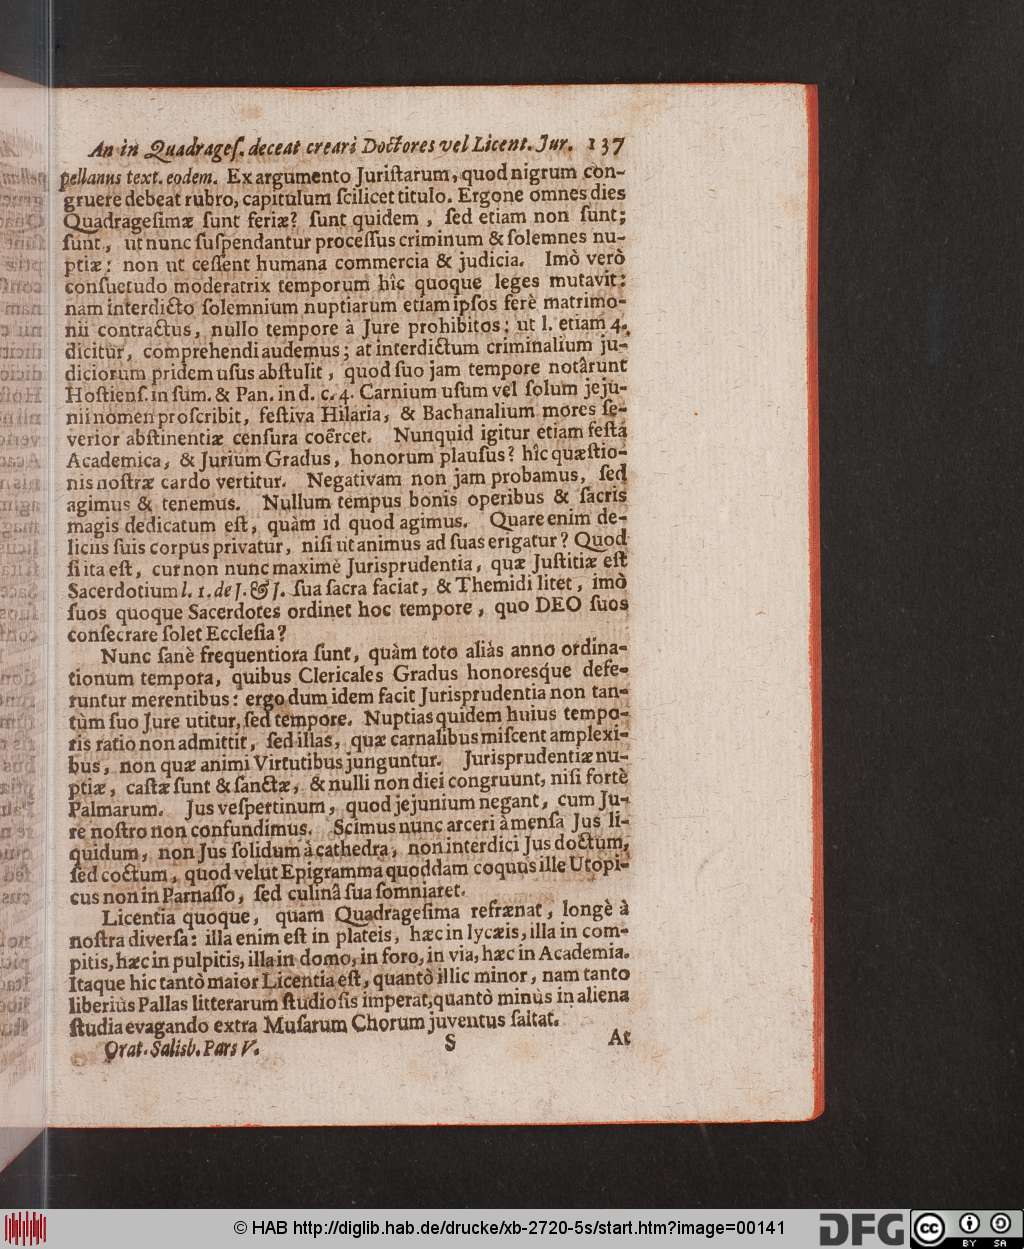 An in Quadrageſ. deceat creari Doctores vel Licent. Jur. 137
pellanus text. eodem. Ex argumento Juriſtarum, quod nigrum con-
gruere debeat rubro, capitulum ſcilicet titulo. Ergone omnes dies
Quadrageſimæ ſunt feriæ? ſunt quidem, ſed etiam non ſunt;
ſunt, ut nunc ſuſpendantur proceſſus criminum & ſolemnes nu-
ptiæ: non ut ceſſent humana commercia & judicia. Imò verò
conſuetudo moderatrix temporum hîc quoque leges mutavit:
nam interdicto ſolemnium nuptiarum etiam ipſos ferè matrimo-
nii contractus, nullo tempore à Jure prohibitos; ut l. etiam 4.
dicitur, comprehendi audemus; at interdictum criminalium ju-
diciorum pridem uſus abſtulit, quod ſuo jam tempore notârunt
Hoſtienſ. in ſum. & Pan. in d. c. 4. Carnium uſum vel ſolum jeju-
nii nomen proſcribit, feſtiva Hilaria, & Bachanalium mores ſe-
verior abſtinentiæ cenſura coërcet. Nunquid igitur etiam feſta
Academica, & Jurium Gradus, honorum plauſus? hîc quæſtio-
nis noſtræ cardo vertitur. Negativam non jam probamus, ſed
agimus & tenemus. Nullum tempus bonis operibus & ſacris
magis dedicatum eſt, quàm id quod agimus. Quare enim de-
liciis ſuis corpus privatur, niſi ut animus ad ſuas erigatur? Quod
ſi ita eſt, cur non nunc maximè Jurisprudentia, quæ Juſtitiæ eſt
Sacerdotium l. 1. de J. & J. ſua ſacra faciat, & Themidi litet, imò
ſuos quoque Sacerdotes ordinet hoc tempore, quo DEO ſuos
conſecrare ſolet Eccleſia?
Nunc ſanè frequentiora ſunt, quàm toto aliàs anno ordina-
tionum tempora, quibus Clericales Gradus honoresque defe-
runtur merentibus: ergo dum idem facit Jurisprudentia non tan-
tùm ſuo Jure utitur, ſed tempore. Nuptias quidem huius tempo-
ris ratio non admittit, ſed illas, quæ carnalibus miſcent amplexi-
bus, non quæ animi Virtutibus junguntur. Jurisprudentiæ nu-
ptiæ, caſtæ ſunt & ſanctæ, & nulli non diei congruunt, niſi fortè
Palmarum. Jus veſpertinum, quod jejunium negant, cum Ju-
re noſtro non confundimus. Scimus nunc arceri à menſa Jus li-
quidum, non Jus ſolidum à cathedra, non interdici Jus doctum,
ſed coctum, quod velut Epigramma quoddam coquus ille Utopi-
cus non in Parnaſſo, ſed culinâ ſua ſomniaret.
Licentia quoque, quam Quadrageſima refrænat, longè à
noſtra diverſa: illa enim eſt in plateis, hæc in lycæis, illa in com-
pitis, hæc in pulpitis, illa in domo, in foro, in via, hæc in Academia.
Itaque hic tantò maior Licentia eſt, quantò illic minor, nam tanto
liberiùs Pallas litterarum ſtudioſis imperat, quantò minùs in aliena
ſtudia evagando extra Muſarum Chorum juventus ſaltat.
Orat. Salisb. Pars V. S At
© HAB http://diglib.hab.de/drucke/xb-2720-5s/start.htm?image=00141
DFG cc BY SA